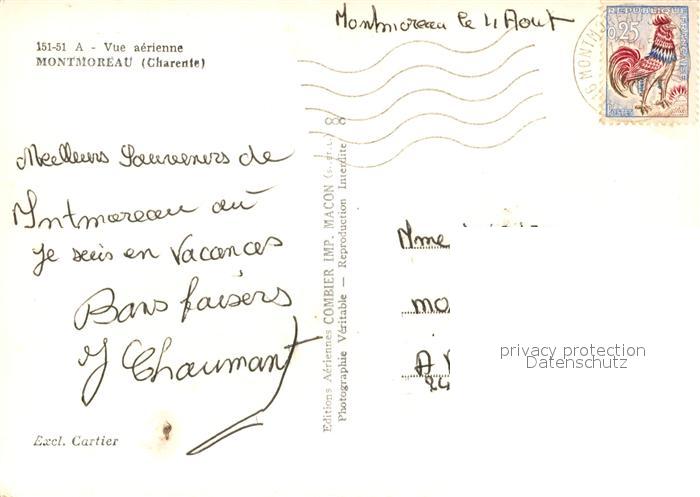 Montmoreau le 4 Aout
151-51 A - Vue aérienne
MONTMOREAU (Charente)
REPUBLIQUE FRANÇAISE
0,25
POSTES
16 MONTM
Meilleurs Souvenirs de
Montmoreau au
Je suis en Vacances
Bons baisers
J Chaumant
Editions Aériennes COMBIER IMP. MACON
Photographie Véritable — Reproduction Interdite
Mme
MO
A V
24
privacy protection
Datenschutz
Excl. Cartier